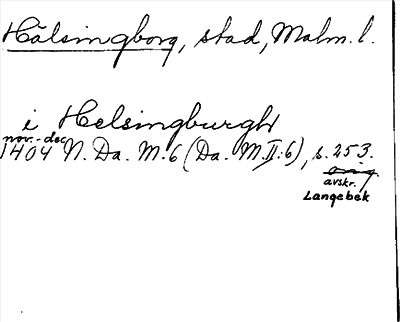 Hälsingborg, stad, Malm. l.
i Helsingburgh
nov.-dec.
1404 N. Da. M. 6 (Da. M. II:6), s. 253.
avskr.
Langebek